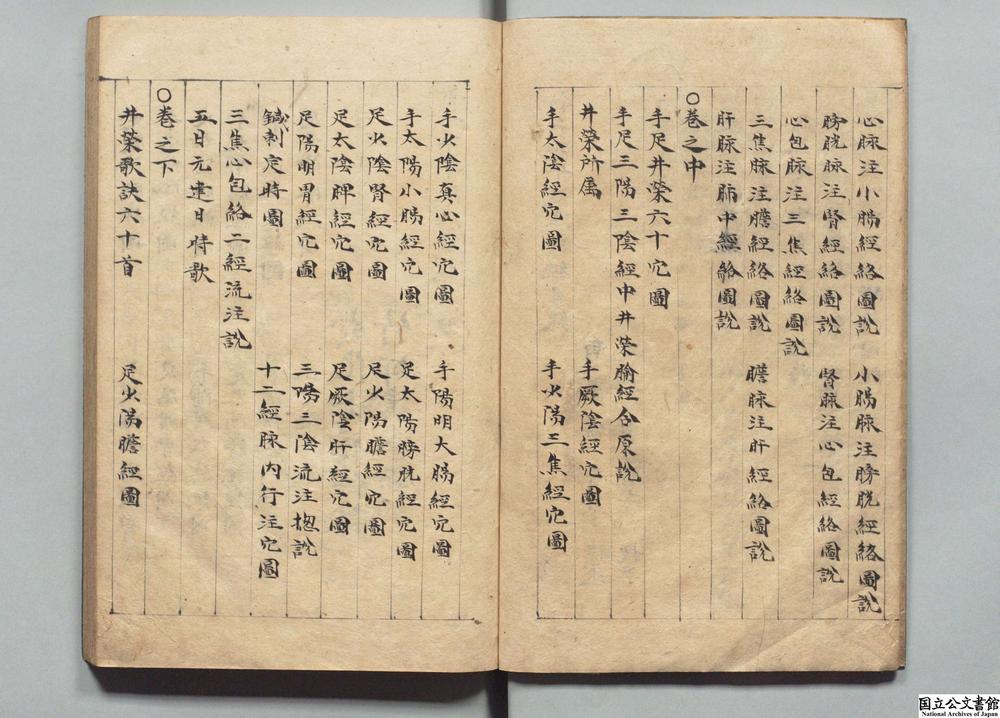 心脉注小腸經絡圖說 小腸脉注膀胱經絡圖說
膀胱脉注腎經絡圖說 腎脉注心包經絡圖說
心包脉注三焦經絡圖說
三焦脉注膽經絡圖說 膽脉注肝經絡圖說
肝脉注肺中經絡圖說
○卷之中
手足井榮六十穴圖
手足三陽三陰經中井榮腧經合原說
井榮所属
手太陰經穴圖 手厥陰經穴圖
手少陽三焦經穴圖
手少陰真心經穴圖 手陽明大腸經穴圖
手太陽小腸經穴圖 足太陽膀胱經穴圖
足少陰腎經穴圖 足少陽膽經穴圖
足太陰脾經穴圖 足厥陰肝經穴圖
足陽明胃經穴圖 三陽三陰流注揔說
鍼刺定時圖 十二經脉內行注穴圖
三焦心包絡二經流注說
五日元建日時歌
○卷之下
井榮歌訣六十首 足少陽膽經圖
国立公文書館
National Archives of Japan